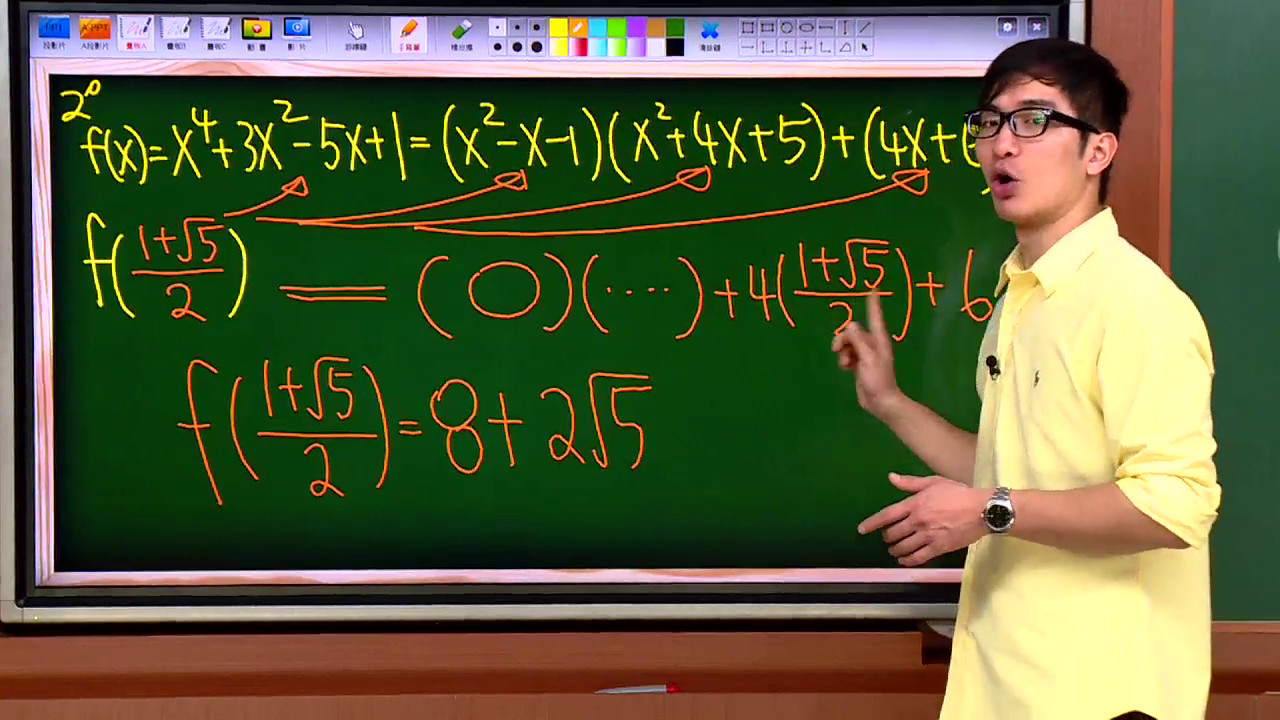 PPT A-PPT
投影片 A投影片 畫板A 畫板B 畫板C 動畫 影片 手寫筆 橡皮擦 清除鍵
2°
f(x)=x⁴+3x²-5x+1=(x²-x-1)(x²+4x+5)+(4x+
f((1+√5)/2) = (0)(....)+4((1+√5)/2)+6
f((1+√5)/2)=8+2√5